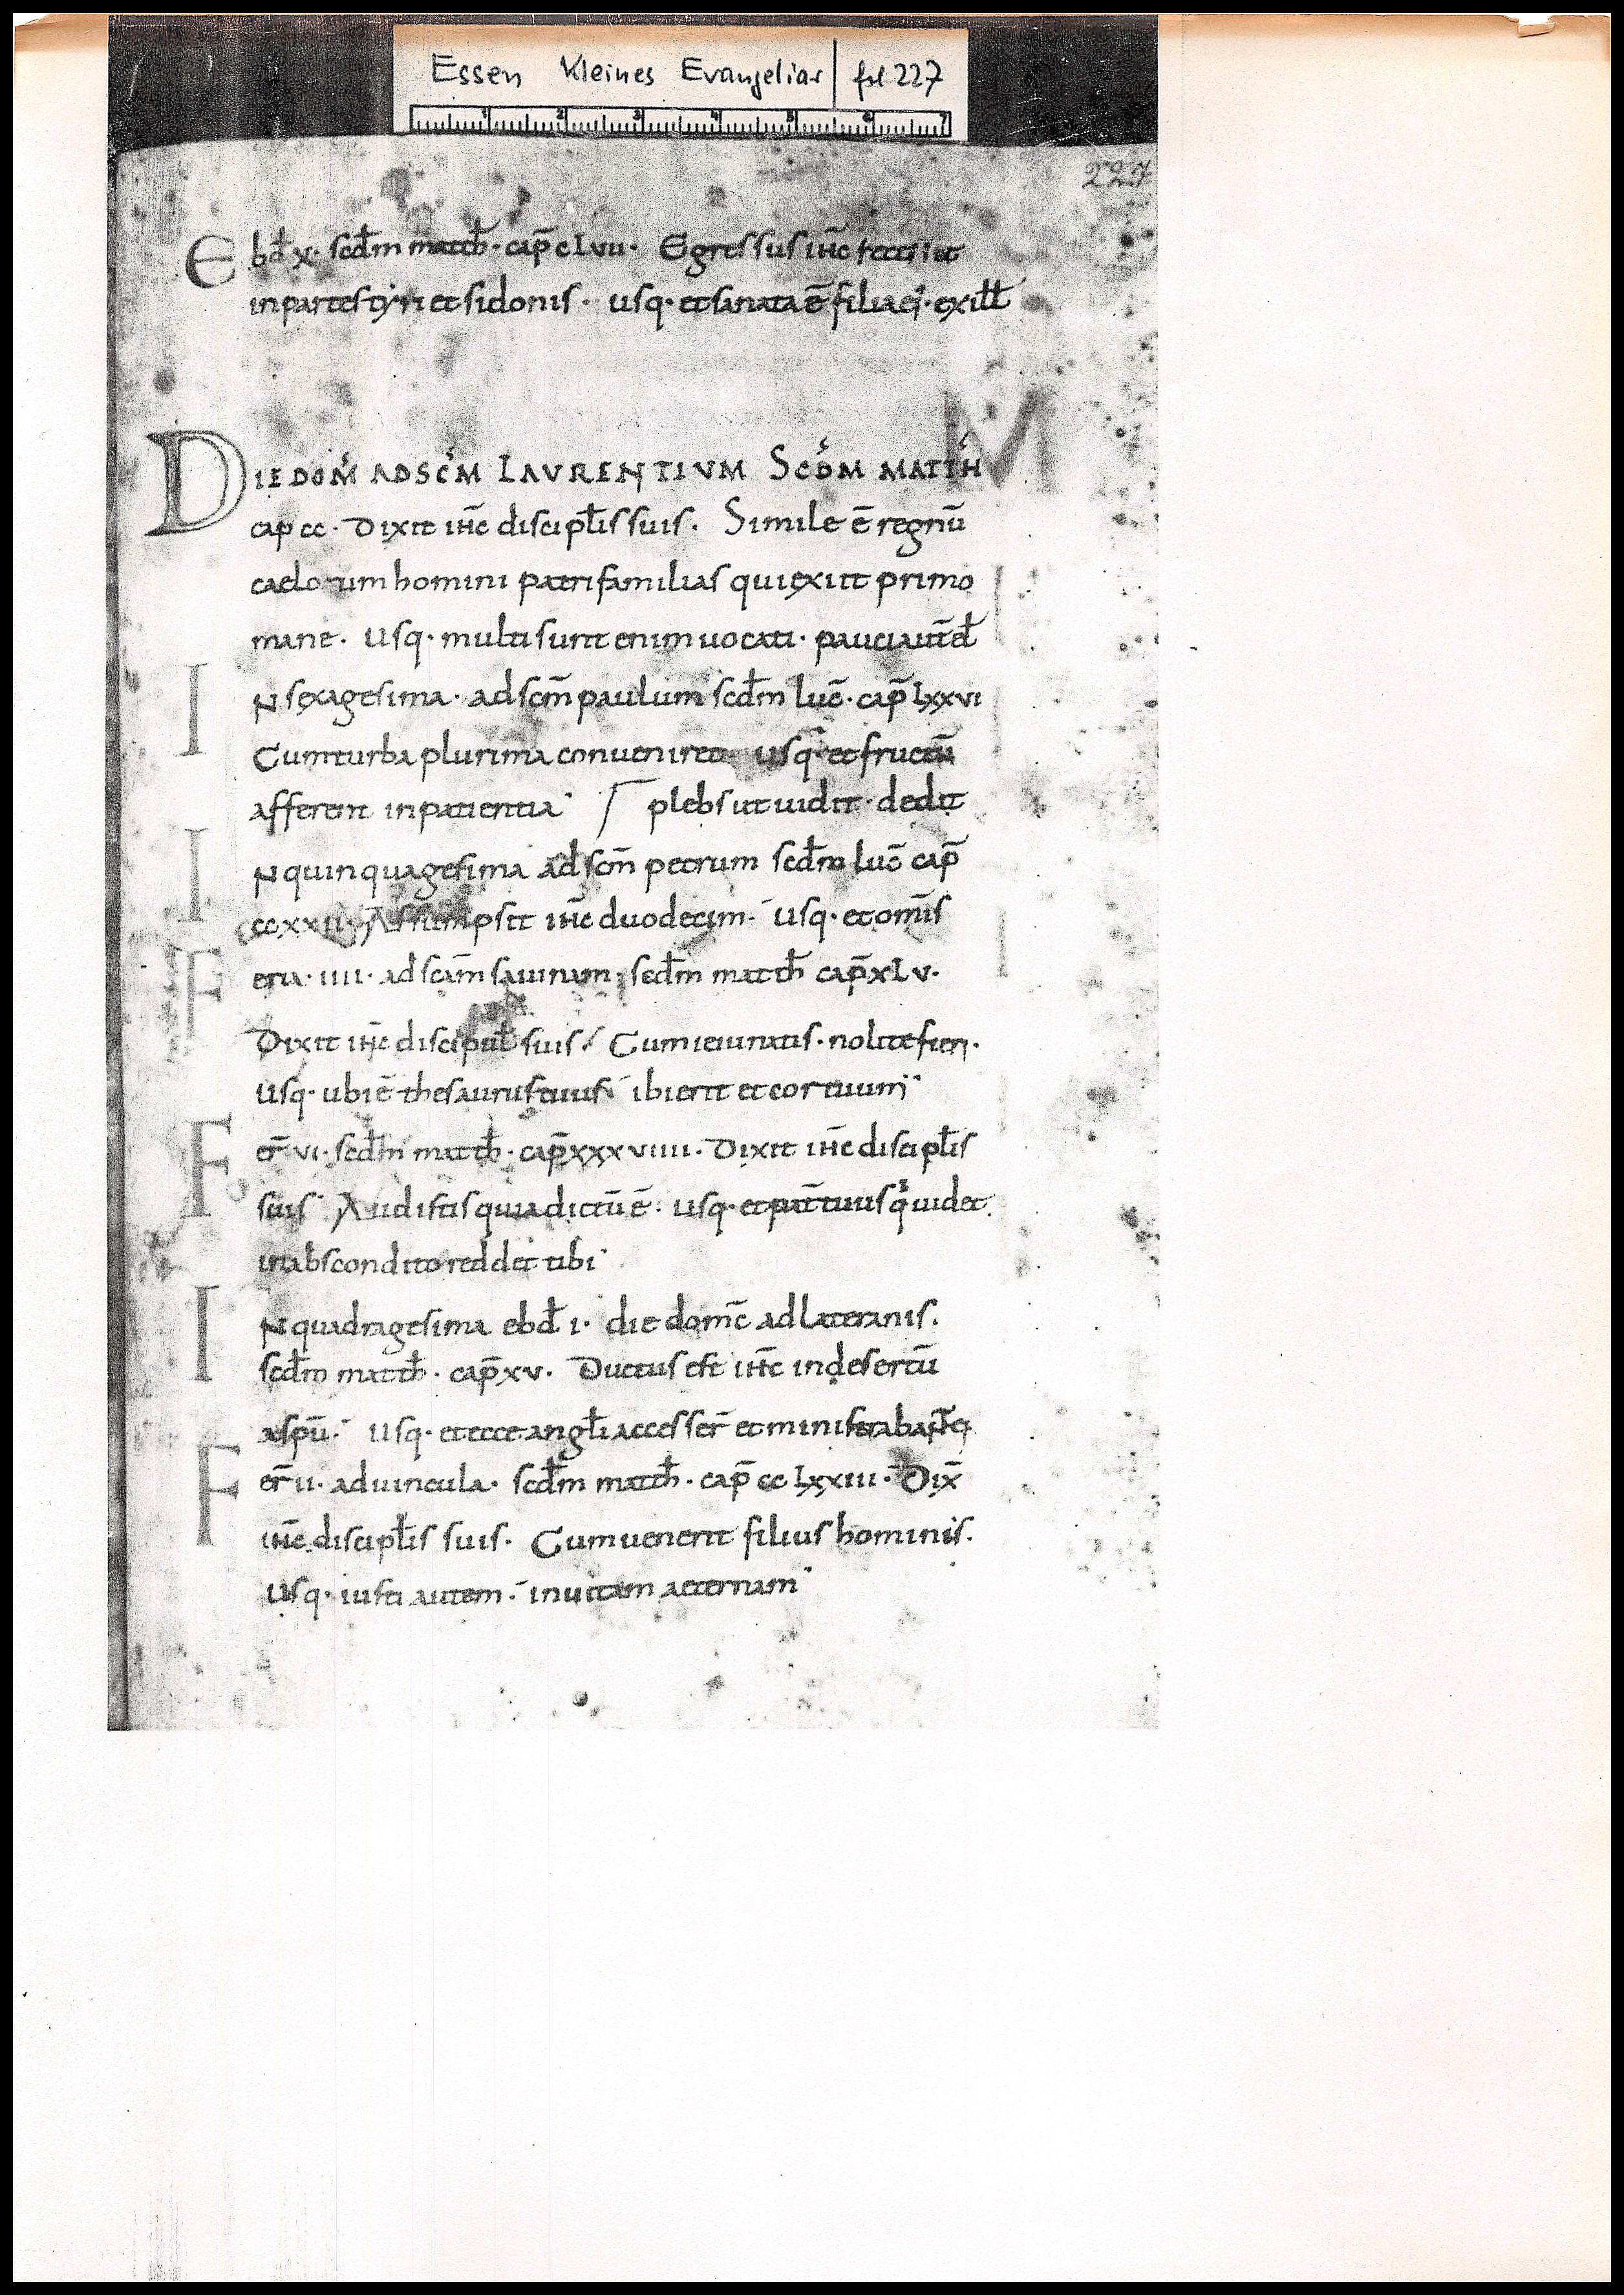 Essen Kleines Evangeliar fol 227
1 2 3 4 5 6 7
227
Ebd̄ x· scd̄m matth̄· cap̄ clvii· Egressus ih̄c secessit
in partes tyri et sidonis· usq· et sanata ē filia ei· ex ill̄
M
DIE DOM̄ AD SC̄M LAVRENTIVM SCD̄M MATTH̄
cap cc· Dixit ih̄c discipl̄is suis. Simile ē regnū
caelorum homini patri familias qui exiit primo
mane· usq· multi sunt enim uocati· pauci aut̄ el̄
IN sexagesima· ad scm̄ paulum scd̄m luc̄· cap̄ lxxvi
Cum turba plurima conueniret usq· et fructū
afferent in patientia plebs ut uidit· dedit
IN quinquagesima ad scm̄ petrum scd̄m luc̄ cap̄
ccxxii· Assumpsit ih̄c duodecim· usq· et omn̄is
Feria· iiii· ad scam̄ sauinam; scd̄m matth̄ cap̄ xlv·
Dixit ih̄c discipul̄ suis Cum ieiunatis· nolite fieri·
usq· ubi ē thesaurus tuus ibi erit et cor tuum
Fer̄ vi· scd̄m matth̄· cap̄ xxxviiii· Dixit ih̄c discipl̄is
suis Audistis quia dictū ē: usq· et pat̄ tuus q̄ uidet
in abscondito reddet tibi
IN quadragesima ebd̄ i· die domc̄ ad lateranis.
scd̄m matth̄· cap̄ xv· Ductus est ih̄c in desertū
a spū· usq· et ecce angl̄i accesser̄ et ministrabant ei
Fer̄ ii· ad uincula· scd̄m matth̄· cap̄ cclxxiii· Dix̄
ih̄c discipl̄is suis· Cum uenerit filius hominis.
usq· iusti autem· in uitam aeternam